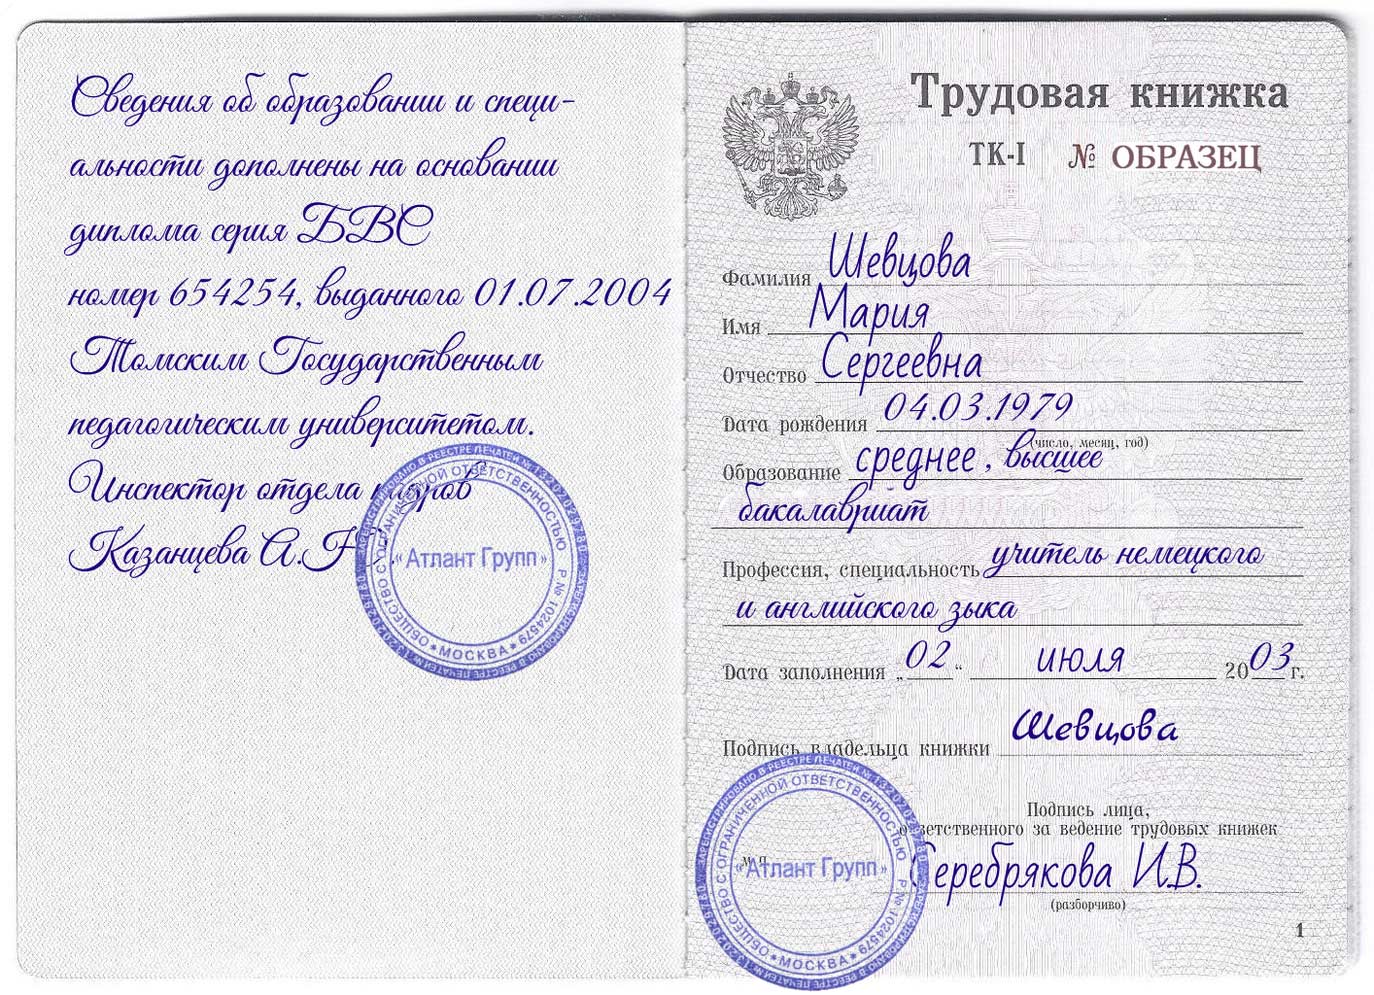 Сведения об образовании и специ-
альности дополнены на основании
диплома серия БВС
номер 654254, выданного 01.07.2004
Томским Государственным
педагогическим университетом.
Инспектор отдела кадров
Казанцева А.Н.
ЗАРЕГИСТРИРОВАНО В РЕЕСТРЕ ПЕЧАТЕЙ №
ОБЩЕСТВО С ОГРАНИЧЕННОЙ ОТВЕТСТВЕННОСТЬЮ Р № 1024579
«Атлант Групп»
* МОСКВА *
Трудовая книжка
ТК-I № ОБРАЗЕЦ
Фамилия Шевцова
Имя Мария
Отчество Сергеевна
Дата рождения 04.03.1979
(число, месяц, год)
Образование среднее, высшее
бакалавриат
Профессия, специальность учитель немецкого
и английского зыка
Дата заполнения „02“ июля 2003 г.
Подпись владельца книжки Шевцова
Подпись лица,
ответственного за ведение трудовых книжек
м п
Серебрякова И.В.
(разборчиво)
ЗАРЕГИСТРИРОВАНО В РЕЕСТРЕ ПЕЧАТЕЙ №
ОБЩЕСТВО С ОГРАНИЧЕННОЙ ОТВЕТСТВЕННОСТЬЮ Р № 1024579
«Атлант Групп»
* МОСКВА *
1